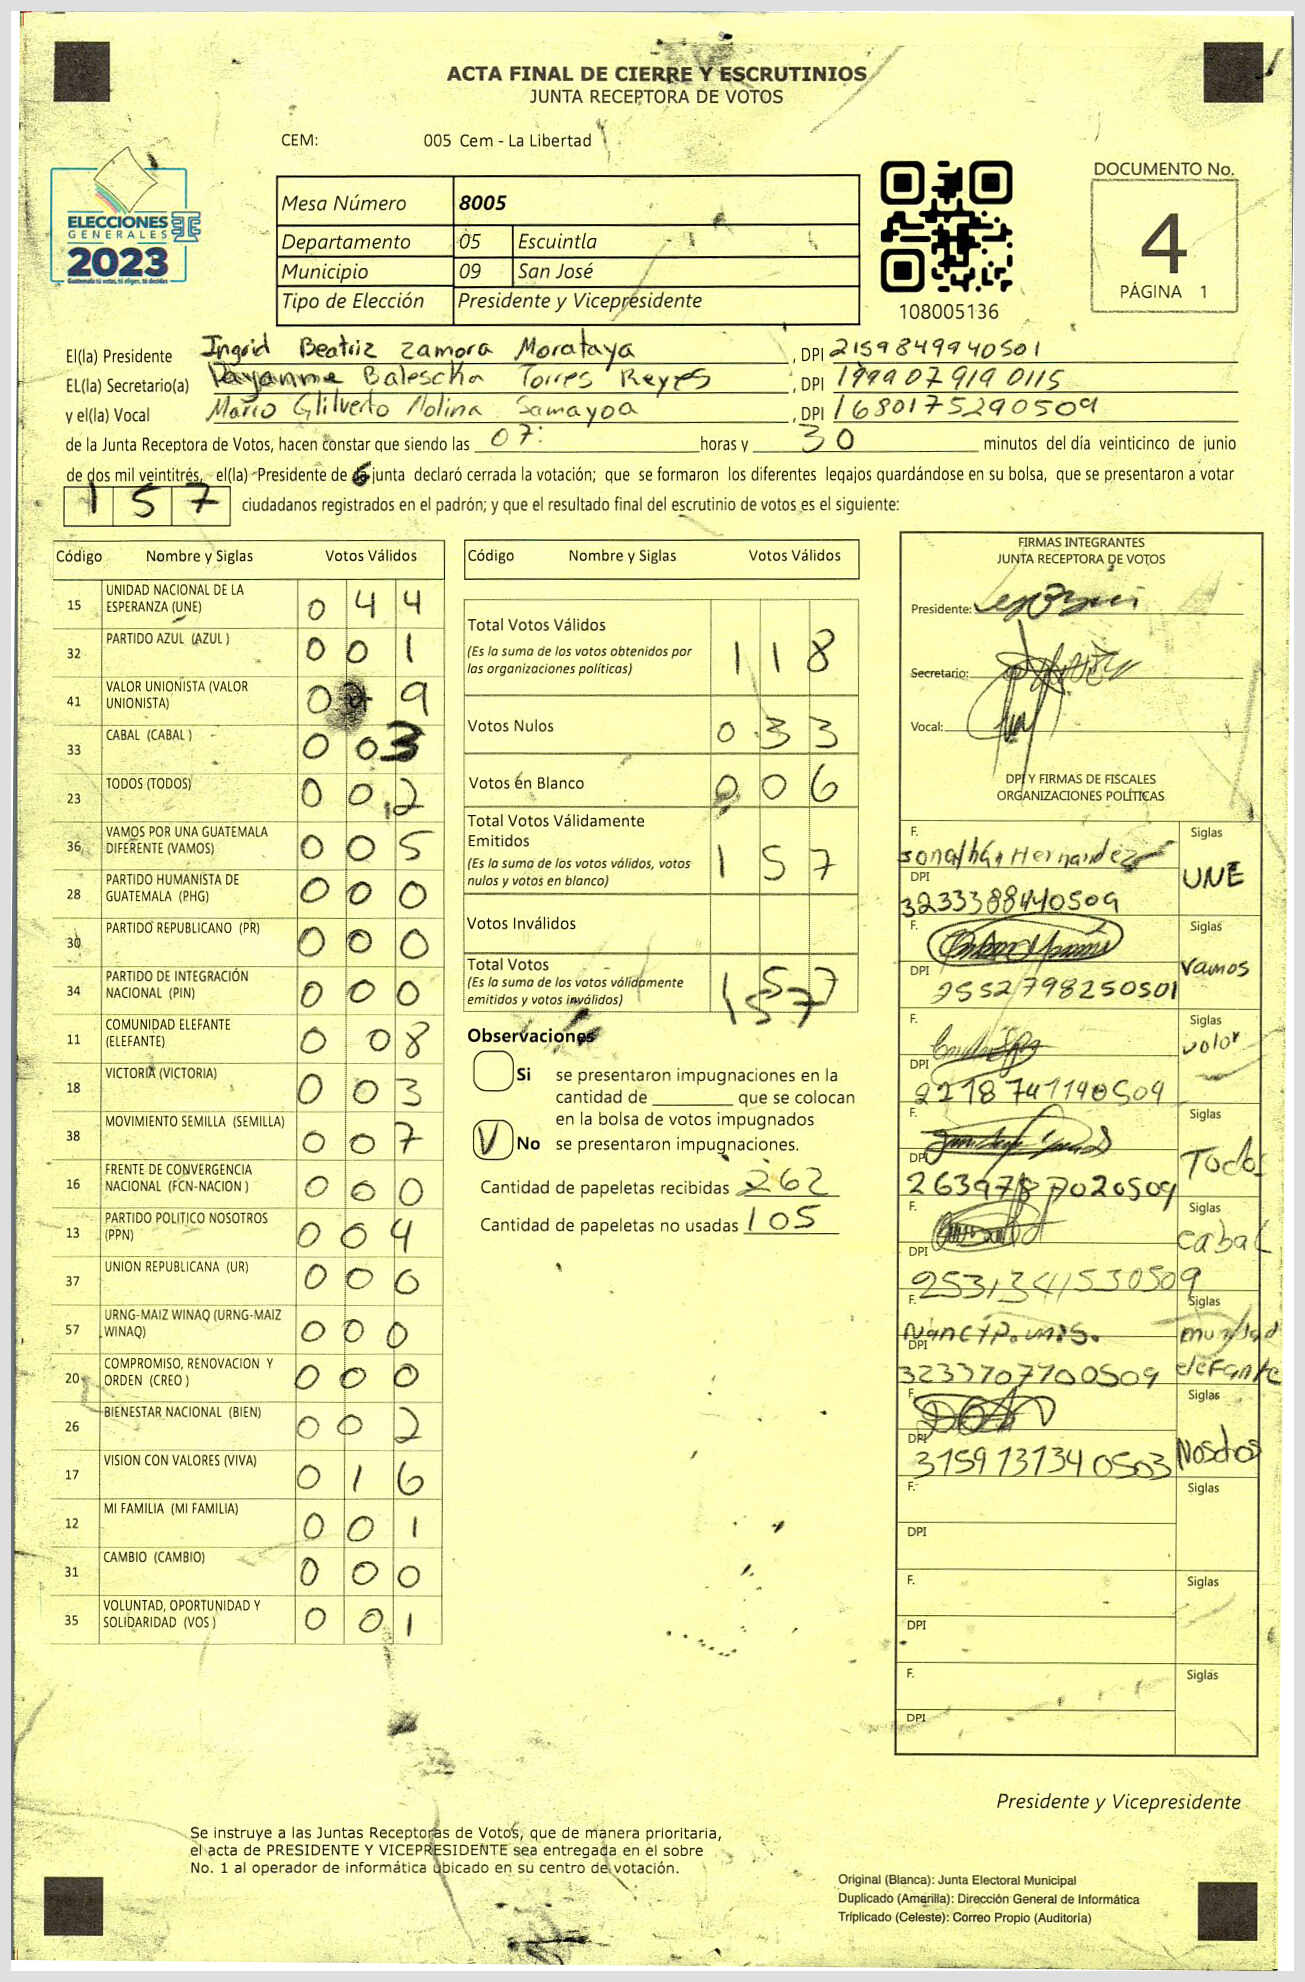 ACTA FINAL DE CIERRE Y ESCRUTINIOS
JUNTA RECEPTORA DE VOTOS
CEM: 005 Cem - La Libertad
ELECCIONES
GENERALES
2023
Mesa Número 8005
Departamento 05 Escuintla
Municipio 09 San José
Tipo de Elección Presidente y Vicepresidente
108005136
DOCUMENTO No.
4
PÁGINA 1
El(la) Presidente Ingrid Beatriz Zamora Morataya , DPI 2159849940501
EL(la) Secretario(a) Dayanne Balescha Torres Reyes , DPI 1999079190115
y el(la) Vocal Mario Gilverto Molina Samayoa , DPI 1680175290509
de la Junta Receptora de Votos, hacen constar que siendo las 07: horas y 30 minutos del día veinticinco de junio
de dos mil veintitrés, el(la) Presidente de la junta declaró cerrada la votación; que se formaron los diferentes legajos guardándose en su bolsa, que se presentaron a votar
157 ciudadanos registrados en el padrón; y que el resultado final del escrutinio de votos es el siguiente:
Código Nombre y Siglas Votos Válidos
15 UNIDAD NACIONAL DE LA ESPERANZA (UNE) 0 4 4
32 PARTIDO AZUL (AZUL ) 0 0 1
41 VALOR UNIONISTA (VALOR UNIONISTA) 0 0 9
33 CABAL (CABAL ) 0 0 3
23 TODOS (TODOS) 0 0 2
36 VAMOS POR UNA GUATEMALA DIFERENTE (VAMOS) 0 0 5
28 PARTIDO HUMANISTA DE GUATEMALA (PHG) 0 0 0
30 PARTIDO REPUBLICANO (PR) 0 0 0
34 PARTIDO DE INTEGRACIÓN NACIONAL (PIN) 0 0 0
11 COMUNIDAD ELEFANTE (ELEFANTE) 0 0 8
18 VICTORIA (VICTORIA) 0 0 3
38 MOVIMIENTO SEMILLA (SEMILLA) 0 0 7
16 FRENTE DE CONVERGENCIA NACIONAL (FCN-NACION ) 0 0 0
13 PARTIDO POLITICO NOSOTROS (PPN) 0 0 4
37 UNION REPUBLICANA (UR) 0 0 0
57 URNG-MAIZ WINAQ (URNG-MAIZ WINAQ) 0 0 0
20 COMPROMISO, RENOVACION Y ORDEN (CREO ) 0 0 0
26 BIENESTAR NACIONAL (BIEN) 0 0 2
17 VISION CON VALORES (VIVA) 0 1 6
12 MI FAMILIA (MI FAMILIA) 0 0 1
31 CAMBIO (CAMBIO) 0 0 0
35 VOLUNTAD, OPORTUNIDAD Y SOLIDARIDAD (VOS ) 0 0 1
Código Nombre y Siglas Votos Válidos
Total Votos Válidos 1 1 8
(Es la suma de los votos obtenidos por
las organizaciones políticas)
Votos Nulos 0 3 3
Votos en Blanco 0 0 6
Total Votos Válidamente
Emitidos 1 5 7
(Es la suma de los votos válidos, votos
nulos y votos en blanco)
Votos Inválidos
Total Votos 1 5 7
(Es la suma de los votos válidamente
emitidos y votos inválidos) 157
Observaciones
Si se presentaron impugnaciones en la
cantidad de ________ que se colocan
en la bolsa de votos impugnados
V No se presentaron impugnaciones.
Cantidad de papeletas recibidas 262
Cantidad de papeletas no usadas 105
FIRMAS INTEGRANTES
JUNTA RECEPTORA DE VOTOS
Presidente:
Secretario:
Vocal:
DPI Y FIRMAS DE FISCALES
ORGANIZACIONES POLÍTICAS
F. Jonathán Hernandez Siglas UNE
DPI 3233388440509
F. Siglas Vamos
DPI 2552798250501
F. Siglas valor
DPI 2218741140509
F. Siglas Todos
DPI 2639787020509
F. Siglas cabal
DPI 2531341530509
F. Siglas
DPI 3233707700509 elefante
F. Siglas Nosotros
DPI 3159131340503
F. Siglas
DPI
F. Siglas
DPI
F. Siglas
DPI
Presidente y Vicepresidente
Se instruye a las Juntas Receptoras de Votos, que de manera prioritaria,
el acta de PRESIDENTE Y VICEPRESIDENTE sea entregada en el sobre
No. 1 al operador de informática ubicado en su centro de votación.
Original (Blanca): Junta Electoral Municipal
Duplicado (Amarilla): Dirección General de Informática
Triplicado (Celeste): Correo Propio (Auditoría)